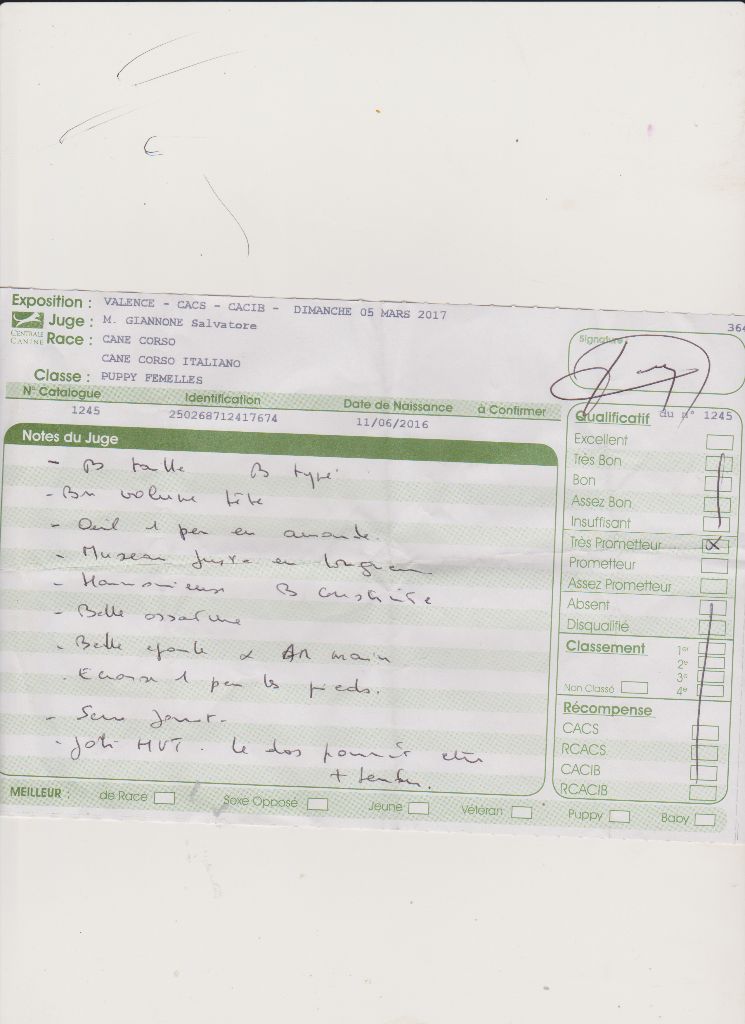 Exposition : VALENCE - CACS - CACIB - DIMANCHE 05 MARS 2017
364
CENTRALE CANINE
Juge : M. GIANNONE Salvatore
Race : CANE CORSO
CANE CORSO ITALIANO
Classe : PUPPY FEMELLES
Signature
N° Catalogue Identification Date de Naissance à Confirmer
1245 250268712417674 11/06/2016
Notes du Juge
- B taille B type
- Bon volume tête
- Oeil 1 peu en amande.
- Museau juste en longueur
- Harmonieuse B construite
- Belle ossature
- Belle épaule & AR main
- Ecrase 1 peu les pieds.
- Sous
- Joli MVT. Le dos pourrait être
+ tendu.
Qualificatif du n° 1245
Excellent
Très Bon
Bon
Assez Bon
Insuffisant
Très Prometteur X
Prometteur
Assez Prometteur
Absent
Disqualifié
Classement 1er
2e
3e
Non Classé 4e
Récompense
CACS
RCACS
CACIB
RCACIB
MEILLEUR : de Race Sexe Opposé Jeune Vétéran Puppy Baby